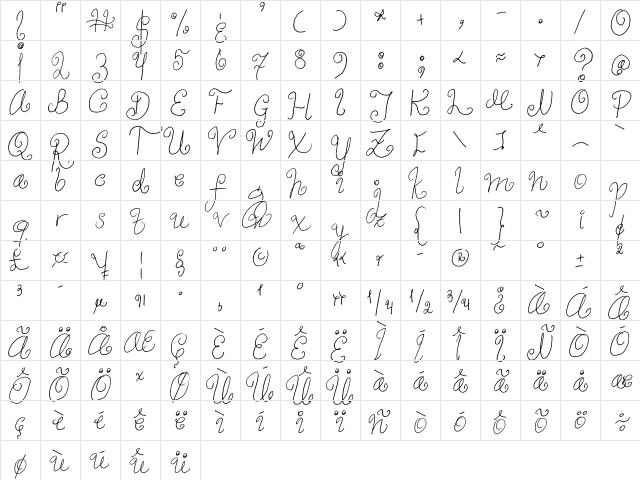 ! " # $ % & ' ( ) * + , - . /  0
1 2 3 4 5 6 7 8 9 : ; < = > ? @
A B C D E F G H I J K L M N O P
Q R S T U V W X Y Z [ \ ] ^ _ `
a b c d e f g h i j k l m n o p
q r s t u v w x y z { | } ~ ¡ ¢
£ ¤ ¥ ¦ § ¨ © ª « ¬ - ® ¯ ° ± ²
³ ´ µ ¶ · ¸ ¹ º » ¼ ½ ¾ ¿ À Á Â
Ã Ä Å Æ Ç È É Ê Ë Ì Í Î Ï Ñ Ò Ó
Ô Õ Ö × Ø Ù Ú Û Ü à á â ã ä å æ
ç è é ê ë ì í î ï ñ ò ó ô õ ö ÷
ø ù ú û ü